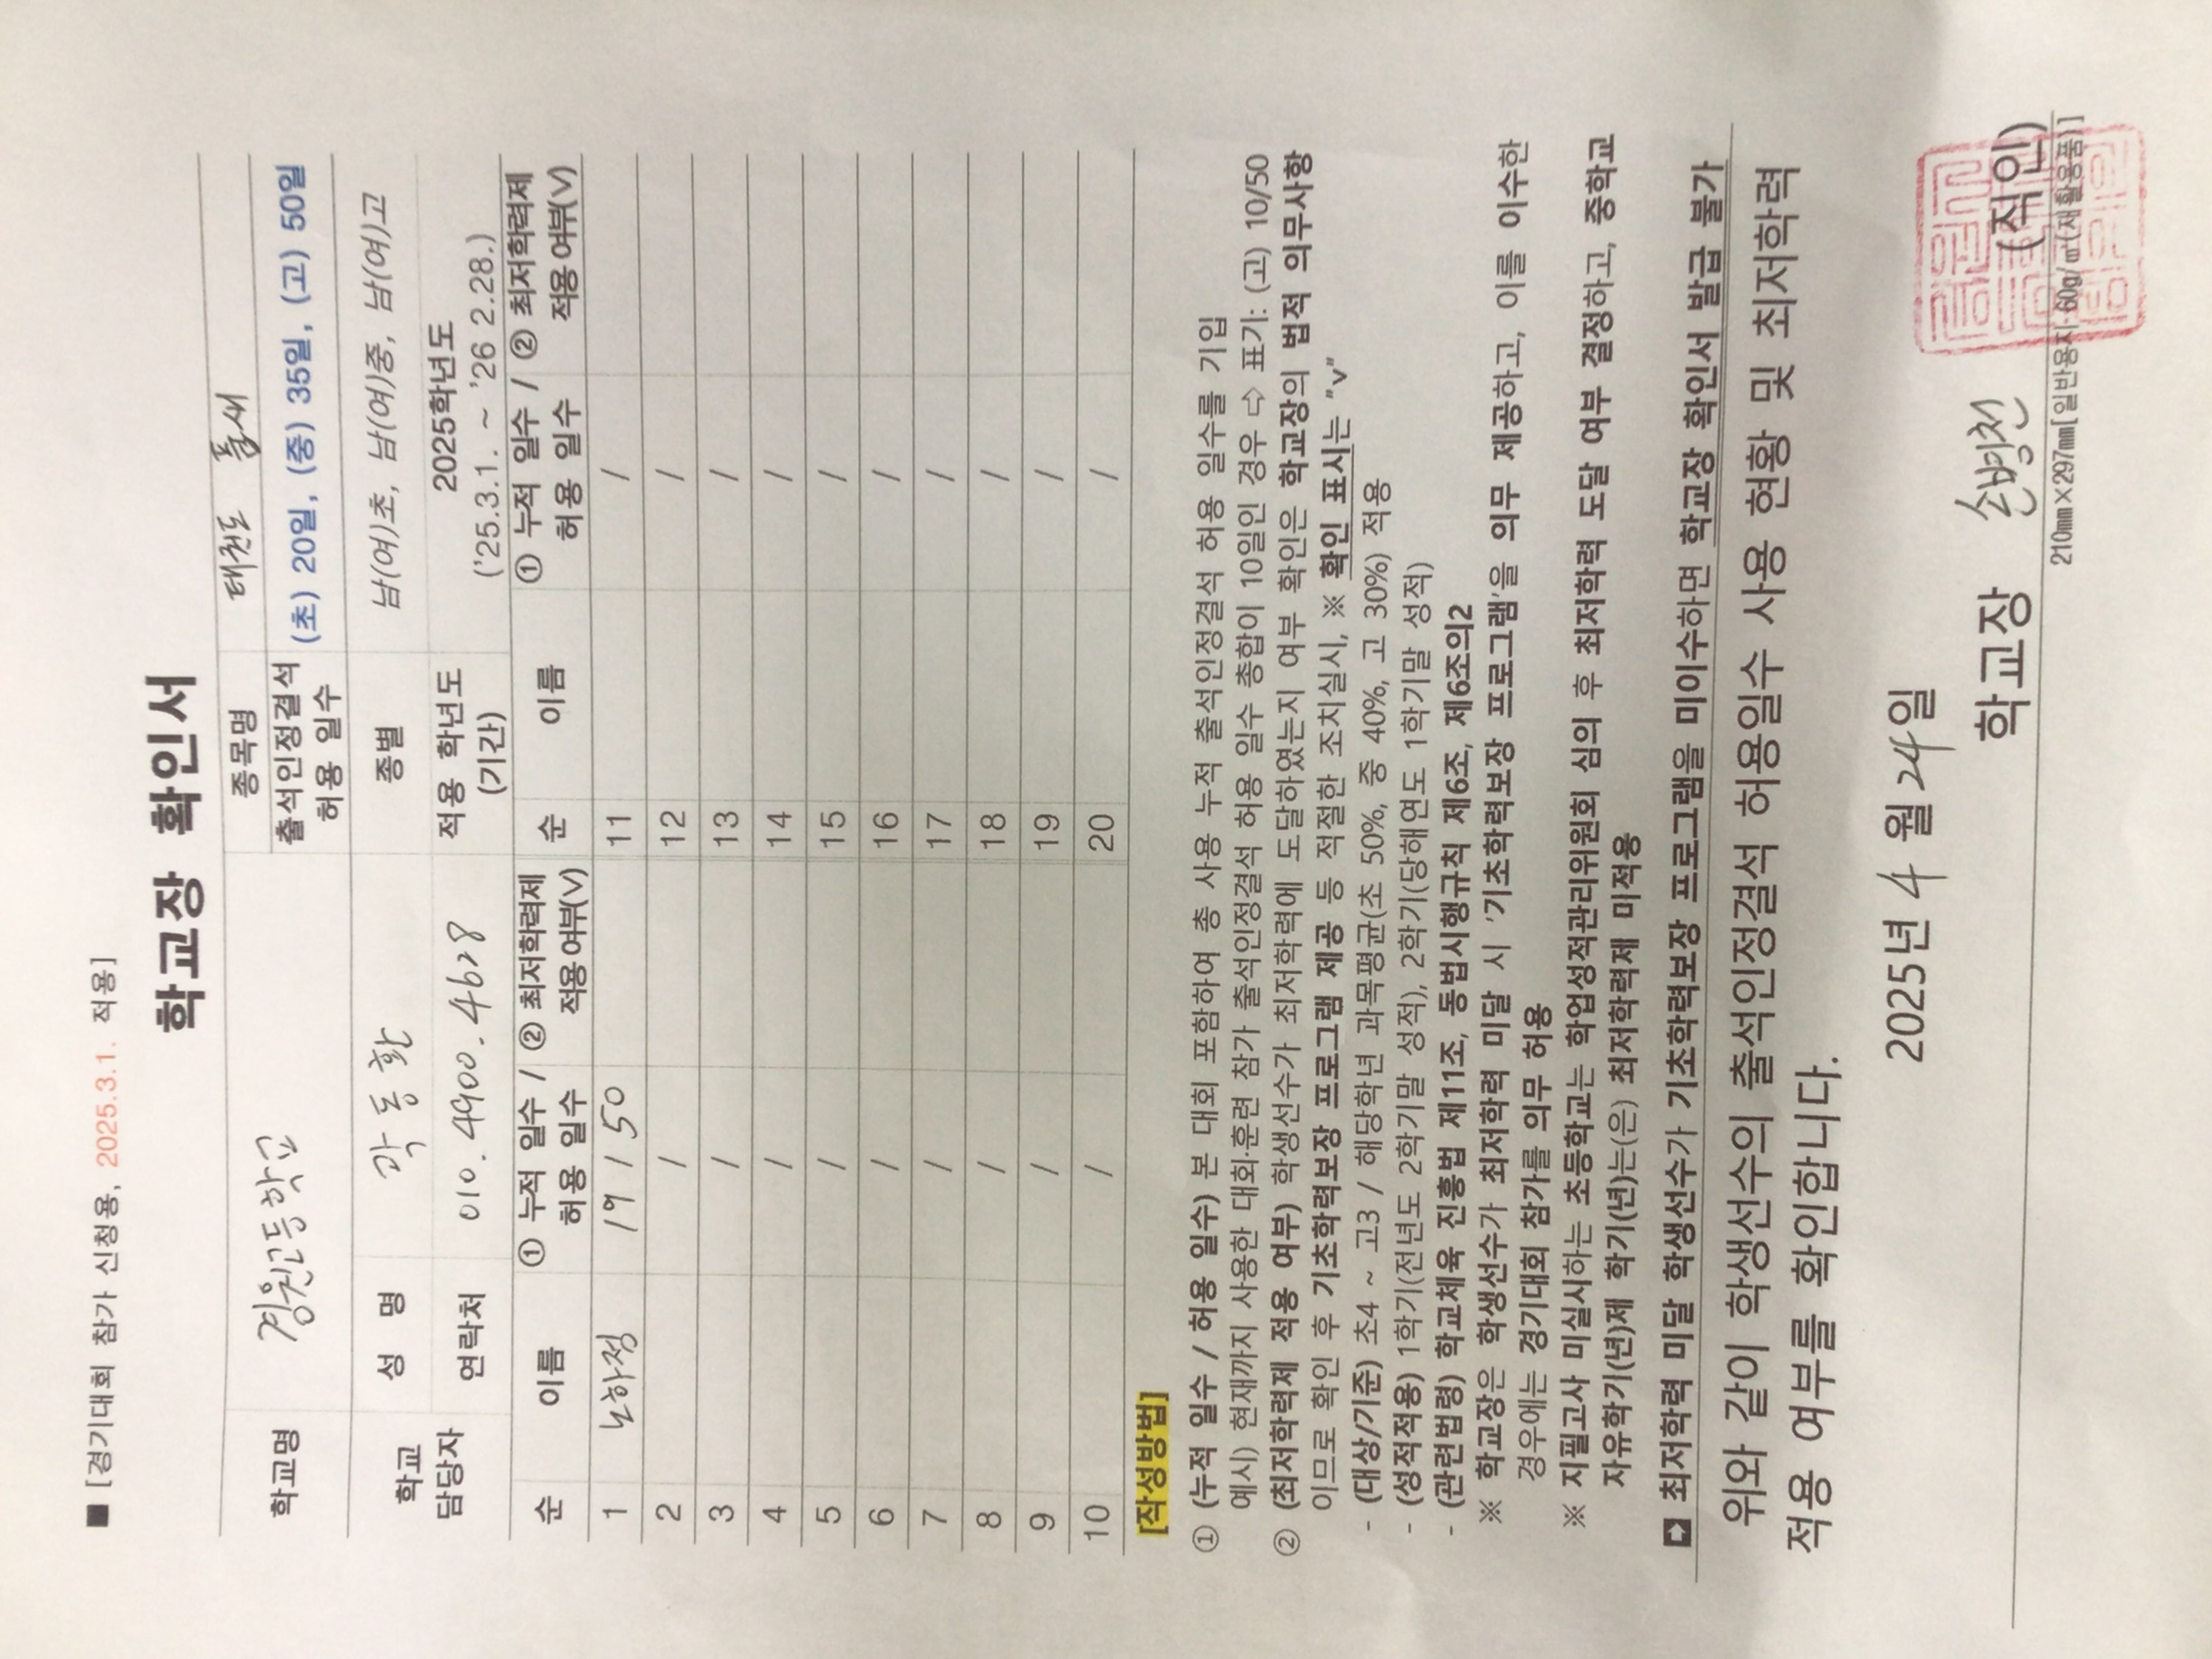 ■ [경기대회 참가 신청용, 2025.3.1. 적용]
학교장 확인서
학교명 경원고등학교 종목명 태권도 품새
출석인정결석 허용 일수 (초) 20일, (중) 35일, (고) 50일
학교 담당자 성 명 곽동환 종별 남(여)초, 남(여)중, 남(여)고
연락처 010.4900.4628 적용 학년도 (기간) 2025학년도 ('25.3.1. ~ '26 2.28.)
순 이름 ① 누적 일수 / 허용 일수 ② 최저학력제 적용여부(V) 순 이름 ① 누적 일수 / 허용 일수 ② 최저학력제 적용여부(V)
1 노하정 19 / 50 11 /
2 / 12 /
3 / 13 /
4 / 14 /
5 / 15 /
6 / 16 /
7 / 17 /
8 / 18 /
9 / 19 /
10 / 20 /
[작성방법]
① (누적 일수 / 허용 일수) 본 대회 포함하여 총 사용 누적 출석인정결석 허용 일수를 기입
예시) 현재까지 사용한 대회·훈련 참가 출석인정결석 허용 일수 총합이 10일인 경우 ⇨ 표기: (고) 10/50
② (최저학력제 적용 여부) 학생선수가 최저학력에 도달하였는지 여부 확인은 학교장의 법적 의무사항
이므로 확인 후 기초학력보장 프로그램 제공 등 적절한 조치실시, ※ 확인 표시는 "v"
- (대상/기준) 초4 ~ 고3 / 해당학년 과목평균(초 50%, 중 40%, 고 30%) 적용
- (성적적용) 1학기(전년도 2학기말 성적), 2학기(당해연도 1학기말 성적)
- (관련법령) 학교체육 진흥법 제11조, 동법시행규칙 제6조, 제6조의2
※ 학교장은 학생선수가 최저학력 미달 시 '기초학력보장 프로그램'을 의무 제공하고, 이를 이수한
경우에는 경기대회 참가를 의무 허용
※ 지필고사 미실시하는 초등학교는 학업성적관리위원회 심의 후 최저학력 도달 여부 결정하고, 중학교
자유학기(년)제 학기(년)는(은) 최저학력제 미적용
➡ 최저학력 미달 학생선수가 기초학력보장 프로그램을 미이수하면 학교장 확인서 발급 불가
위와 같이 학생선수의 출석인정결석 허용일수 사용 현황 및 최저학력
적용 여부를 확인합니다.
2025년 4 월 24일
학교장 손병천 (직인)
210㎜×297㎜[일반용지 60g/㎡(재활용품)]